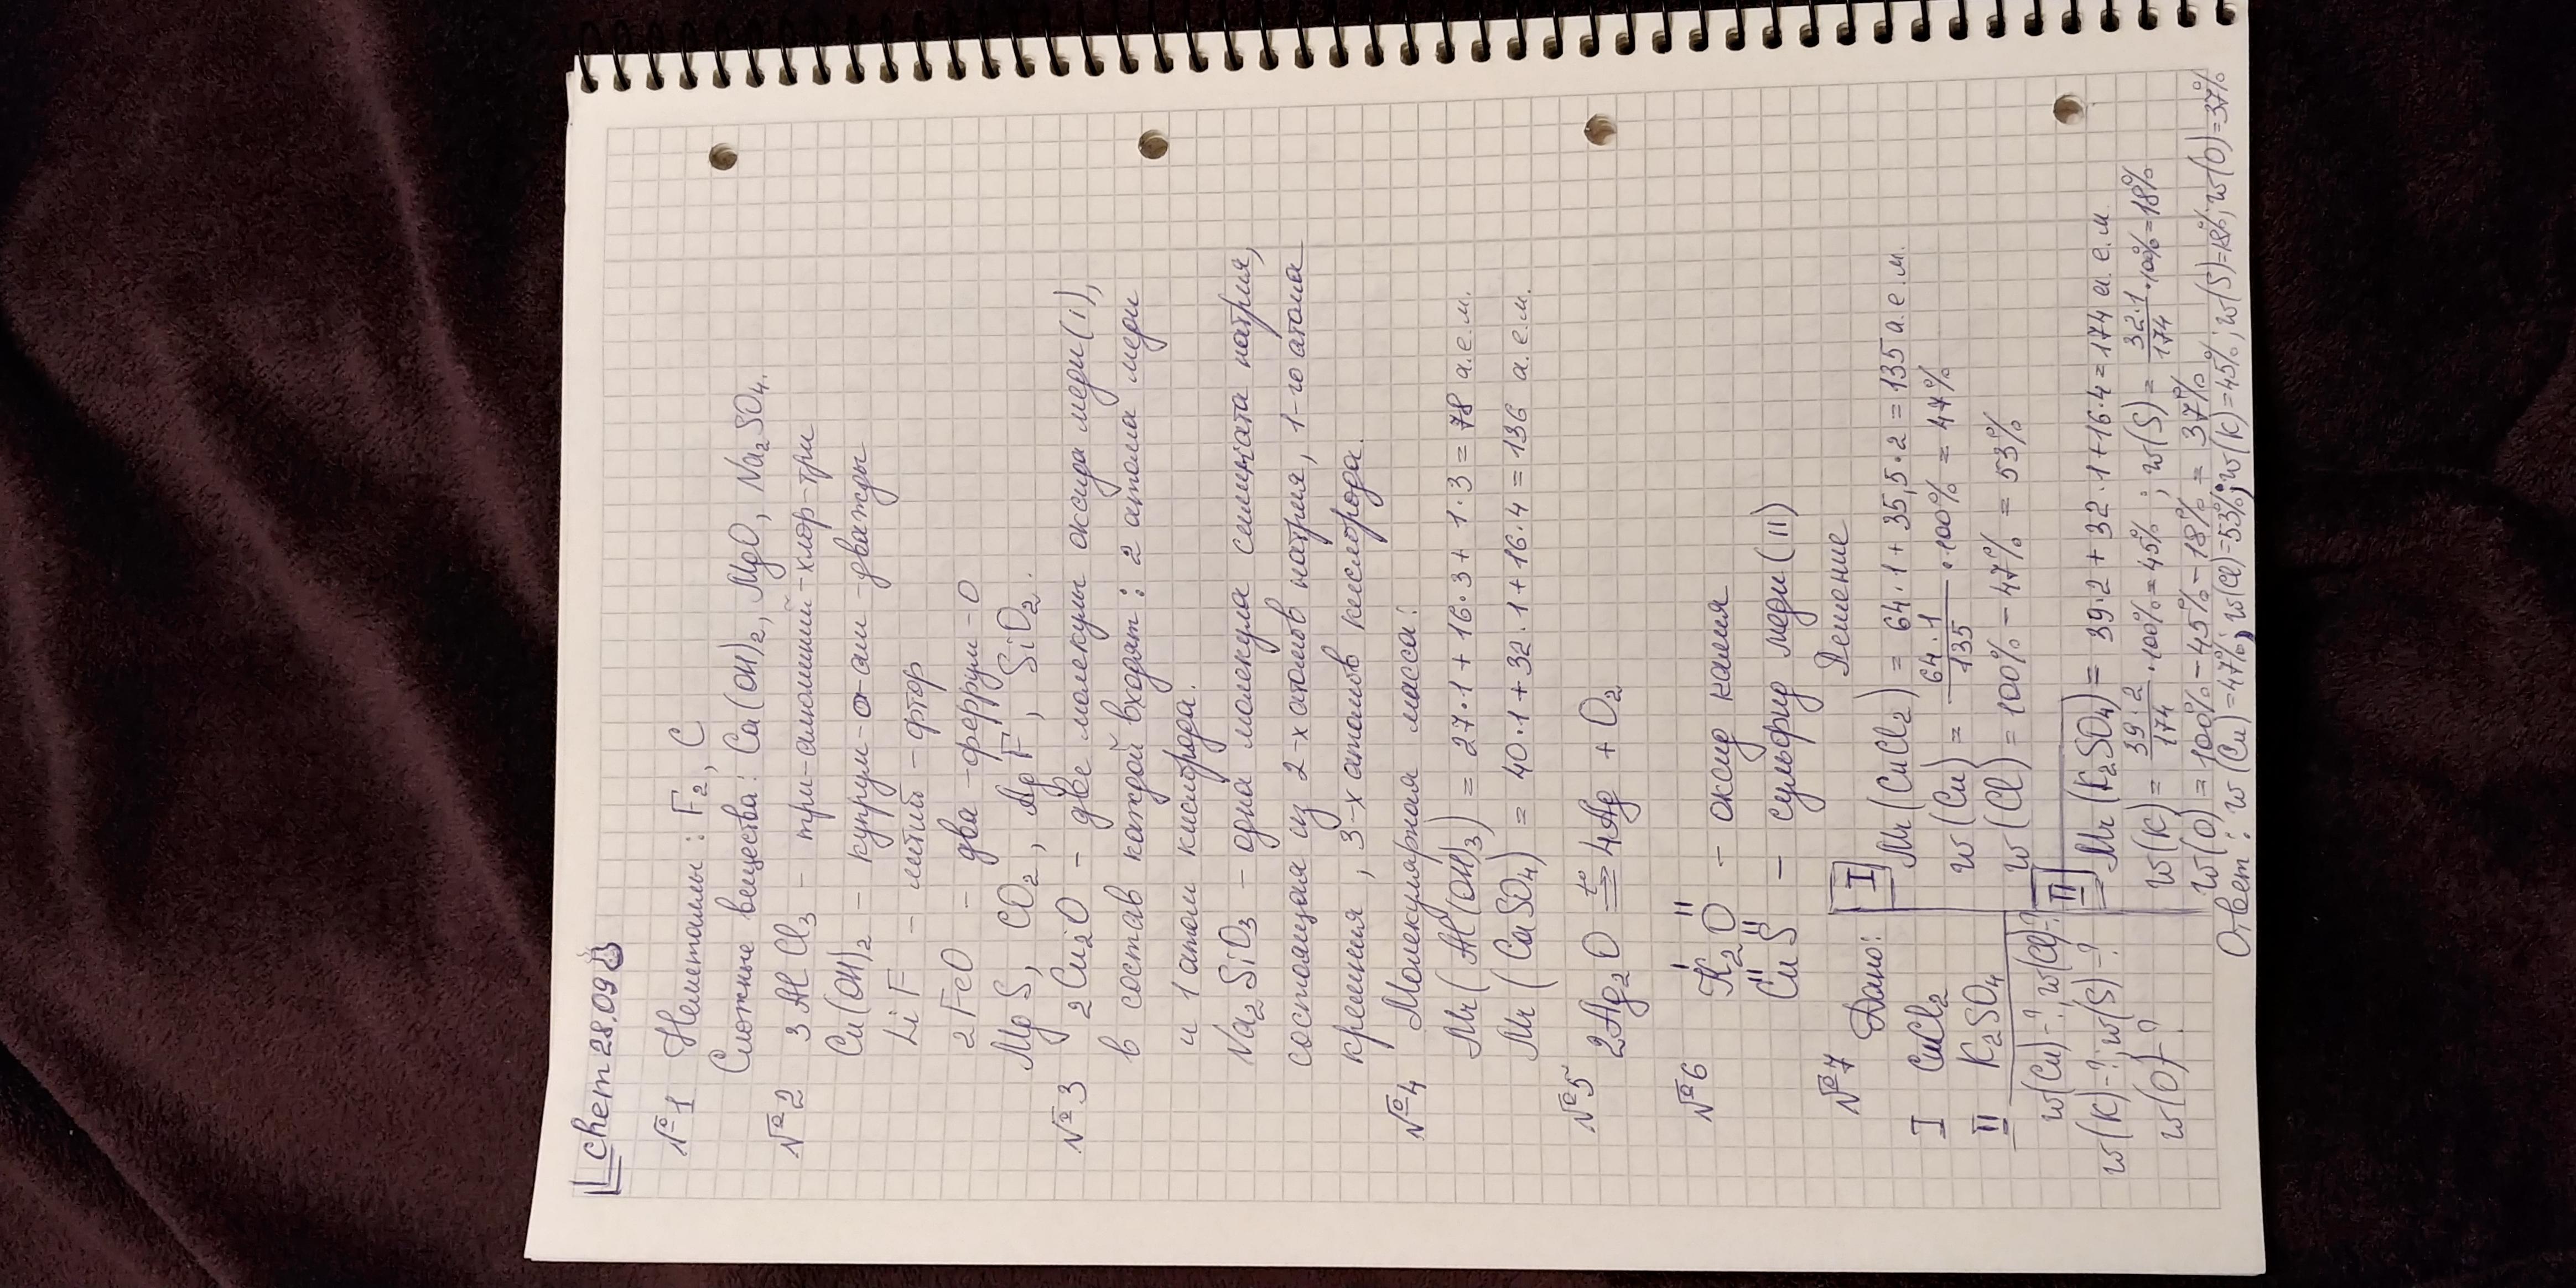 Chem 28.09
№1 Неметаллы: F₂, C
Сложные вещества: Ca(OH)₂, MgO, Na₂SO₄.
№2 3AlCl₃ – три-алюминий-хлор-три
Cu(OH)₂ – купрум-о-аш-дважды
LiF – литий-фтор
2FeO – два-феррум-о
MgS, CO₂, AgF, SiO₂.
№3 2Cu₂O – две молекулы оксида меди(I),
в состав каждой входят: 2 атома меди
и 1 атом кислорода.
Na₂SiO₃ – одна молекула силиката натрия,
состоящая из 2-х атомов натрия, 1-го атома
кремния, 3-х атомов кислорода.
№4 Молекулярная масса:
Mr(Al(OH)₃) = 27·1 + 16·3 + 1·3 = 78 а.е.м.
Mr(CaSO₄) = 40·1 + 32·1 + 16·4 = 136 а.е.м.
№5 2Ag₂O =t°= 4Ag + O₂
№6 K₂O – оксид калия
CuS – сульфид меди(II)
№7 Дано: Решение
I CuCl₂
II K₂SO₄
w(Cu)-?; w(Cl)-?
w(K)-?; w(S)-?
w(O)-?
I Mr(CuCl₂) = 64·1 + 35,5·2 = 135 а.е.м.
w(Cu) = 64·1/135 · 100% = 47%
w(Cl) = 100% – 47% = 53%
II Mr(K₂SO₄) = 39·2 + 32·1 + 16·4 = 174 а.е.м.
w(K) = 39·2/174 · 100% = 45%; w(S) = 32·1/174 · 100% = 18%
w(O) = 100% – 45% – 18% = 37%
Ответ: w(Cu) = 47%; w(Cl) = 53%; w(K) = 45%; w(S) = 18%; w(O) = 37%